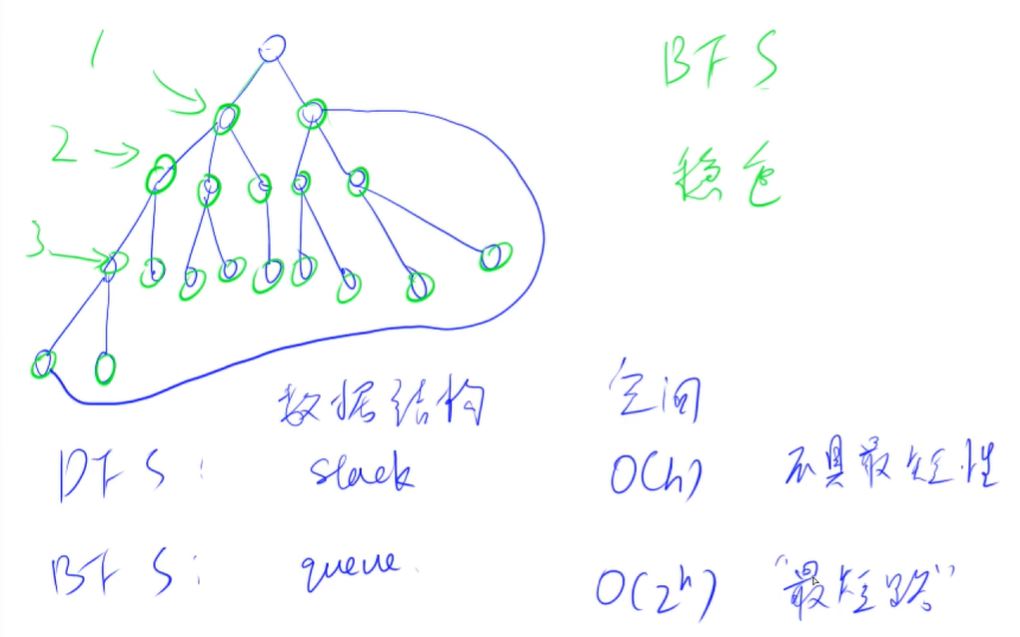 1
BFS
2
稳色
3
数据结构 空间
DFS: stack O(h) 不具最短性
BFS: queue O(2^h) "最短路"